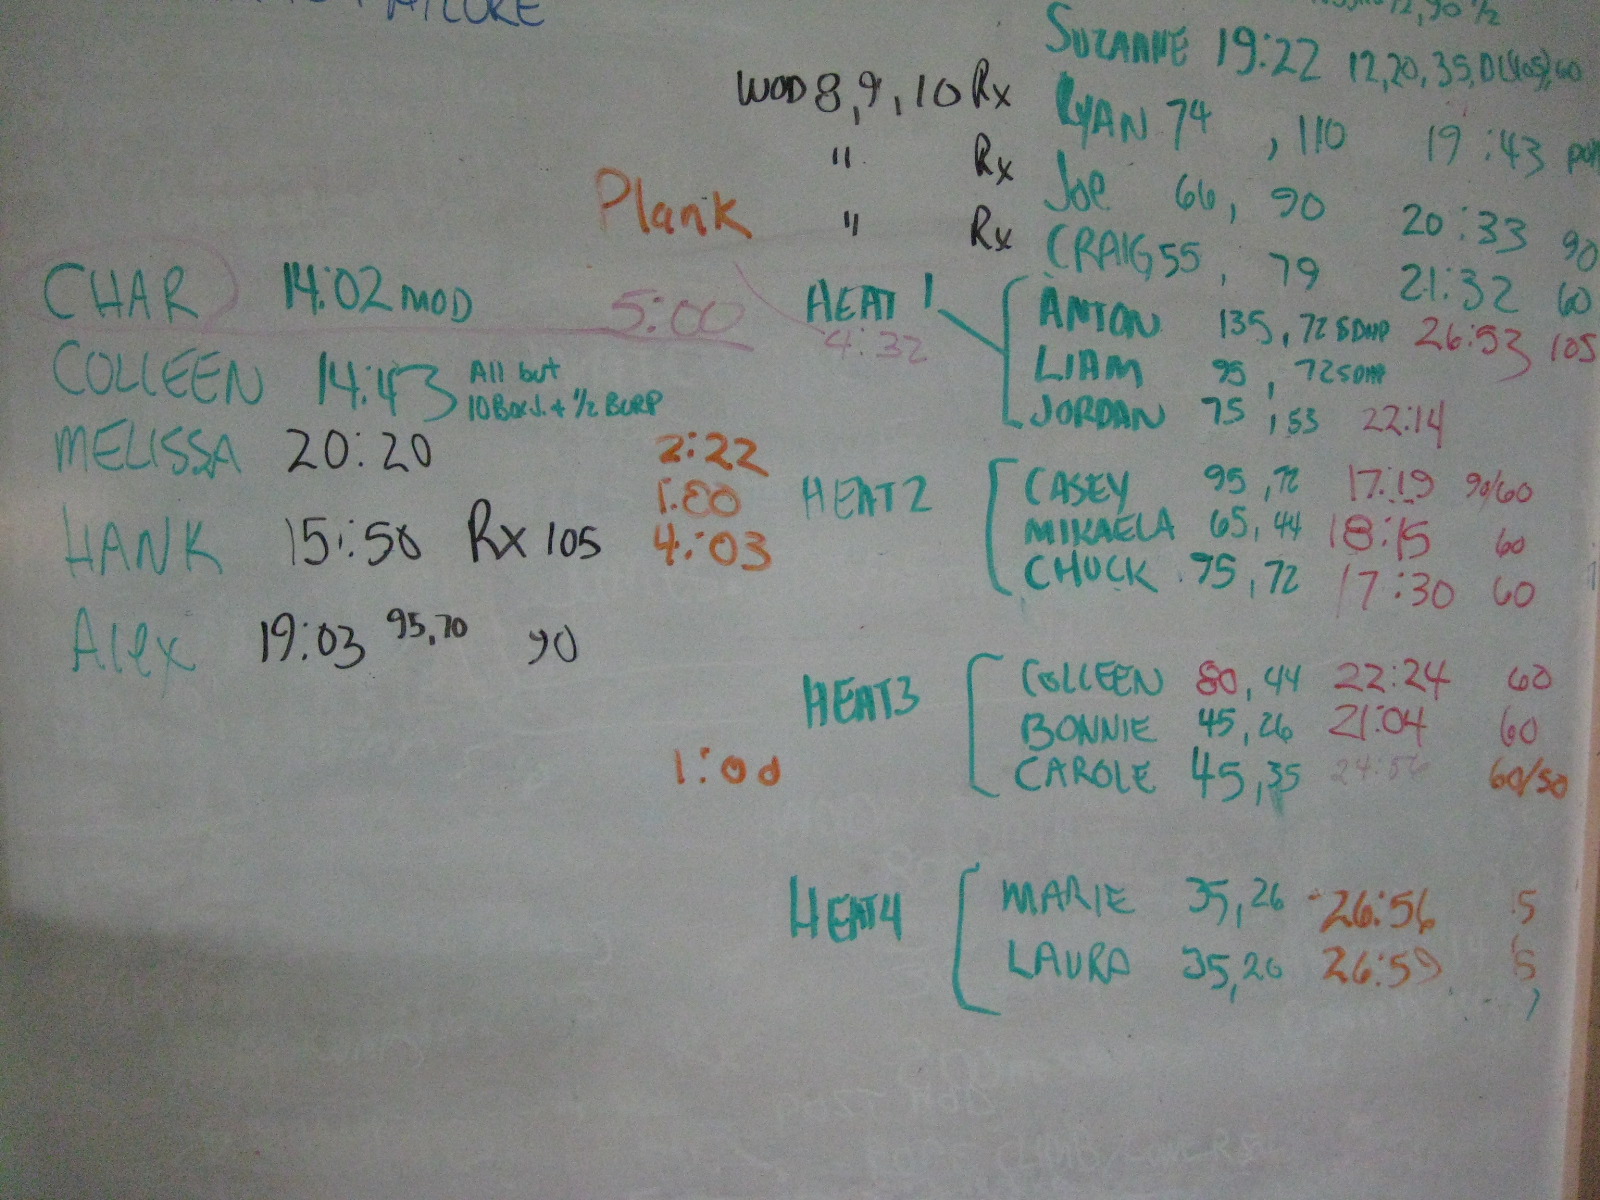 FAILURE
12, 90 1/2
SUZANNE 19:22 12, 20, 35, 60
WOD 8, 9, 10 Rx RYAN 74, 110 19:43
" Rx JOE 66, 90 20:33 90
" Rx CRAIG 55, 79 21:32 60
Plank
CHAR 14:02 MOD 5:00
COLLEEN 14:43 All but
10 Box J. + 1/2 BURP
MELISSA 20:20 2:22
1:80
HANK 15:50 Rx 105 4:03
Alex 19:03 95, 70 90
1:00
HEAT 1
4:32
ANTON 135, 72 SDHP 26:53 105
LIAM 95, 72 SDHP
JORDAN 75, 53 22:14
HEAT 2
CASEY 95, 72 17:19 90/60
MIKAELA 65, 44 18:15 60
CHUCK 75, 72 17:30 60
HEAT 3
COLLEEN 80, 44 22:24 60
BONNIE 45, 26 21:04 60
CAROLE 45, 35 24:56 60/50
HEAT 4
MARIE 35, 26 26:56 5
LAURA 35, 26 26:59 5